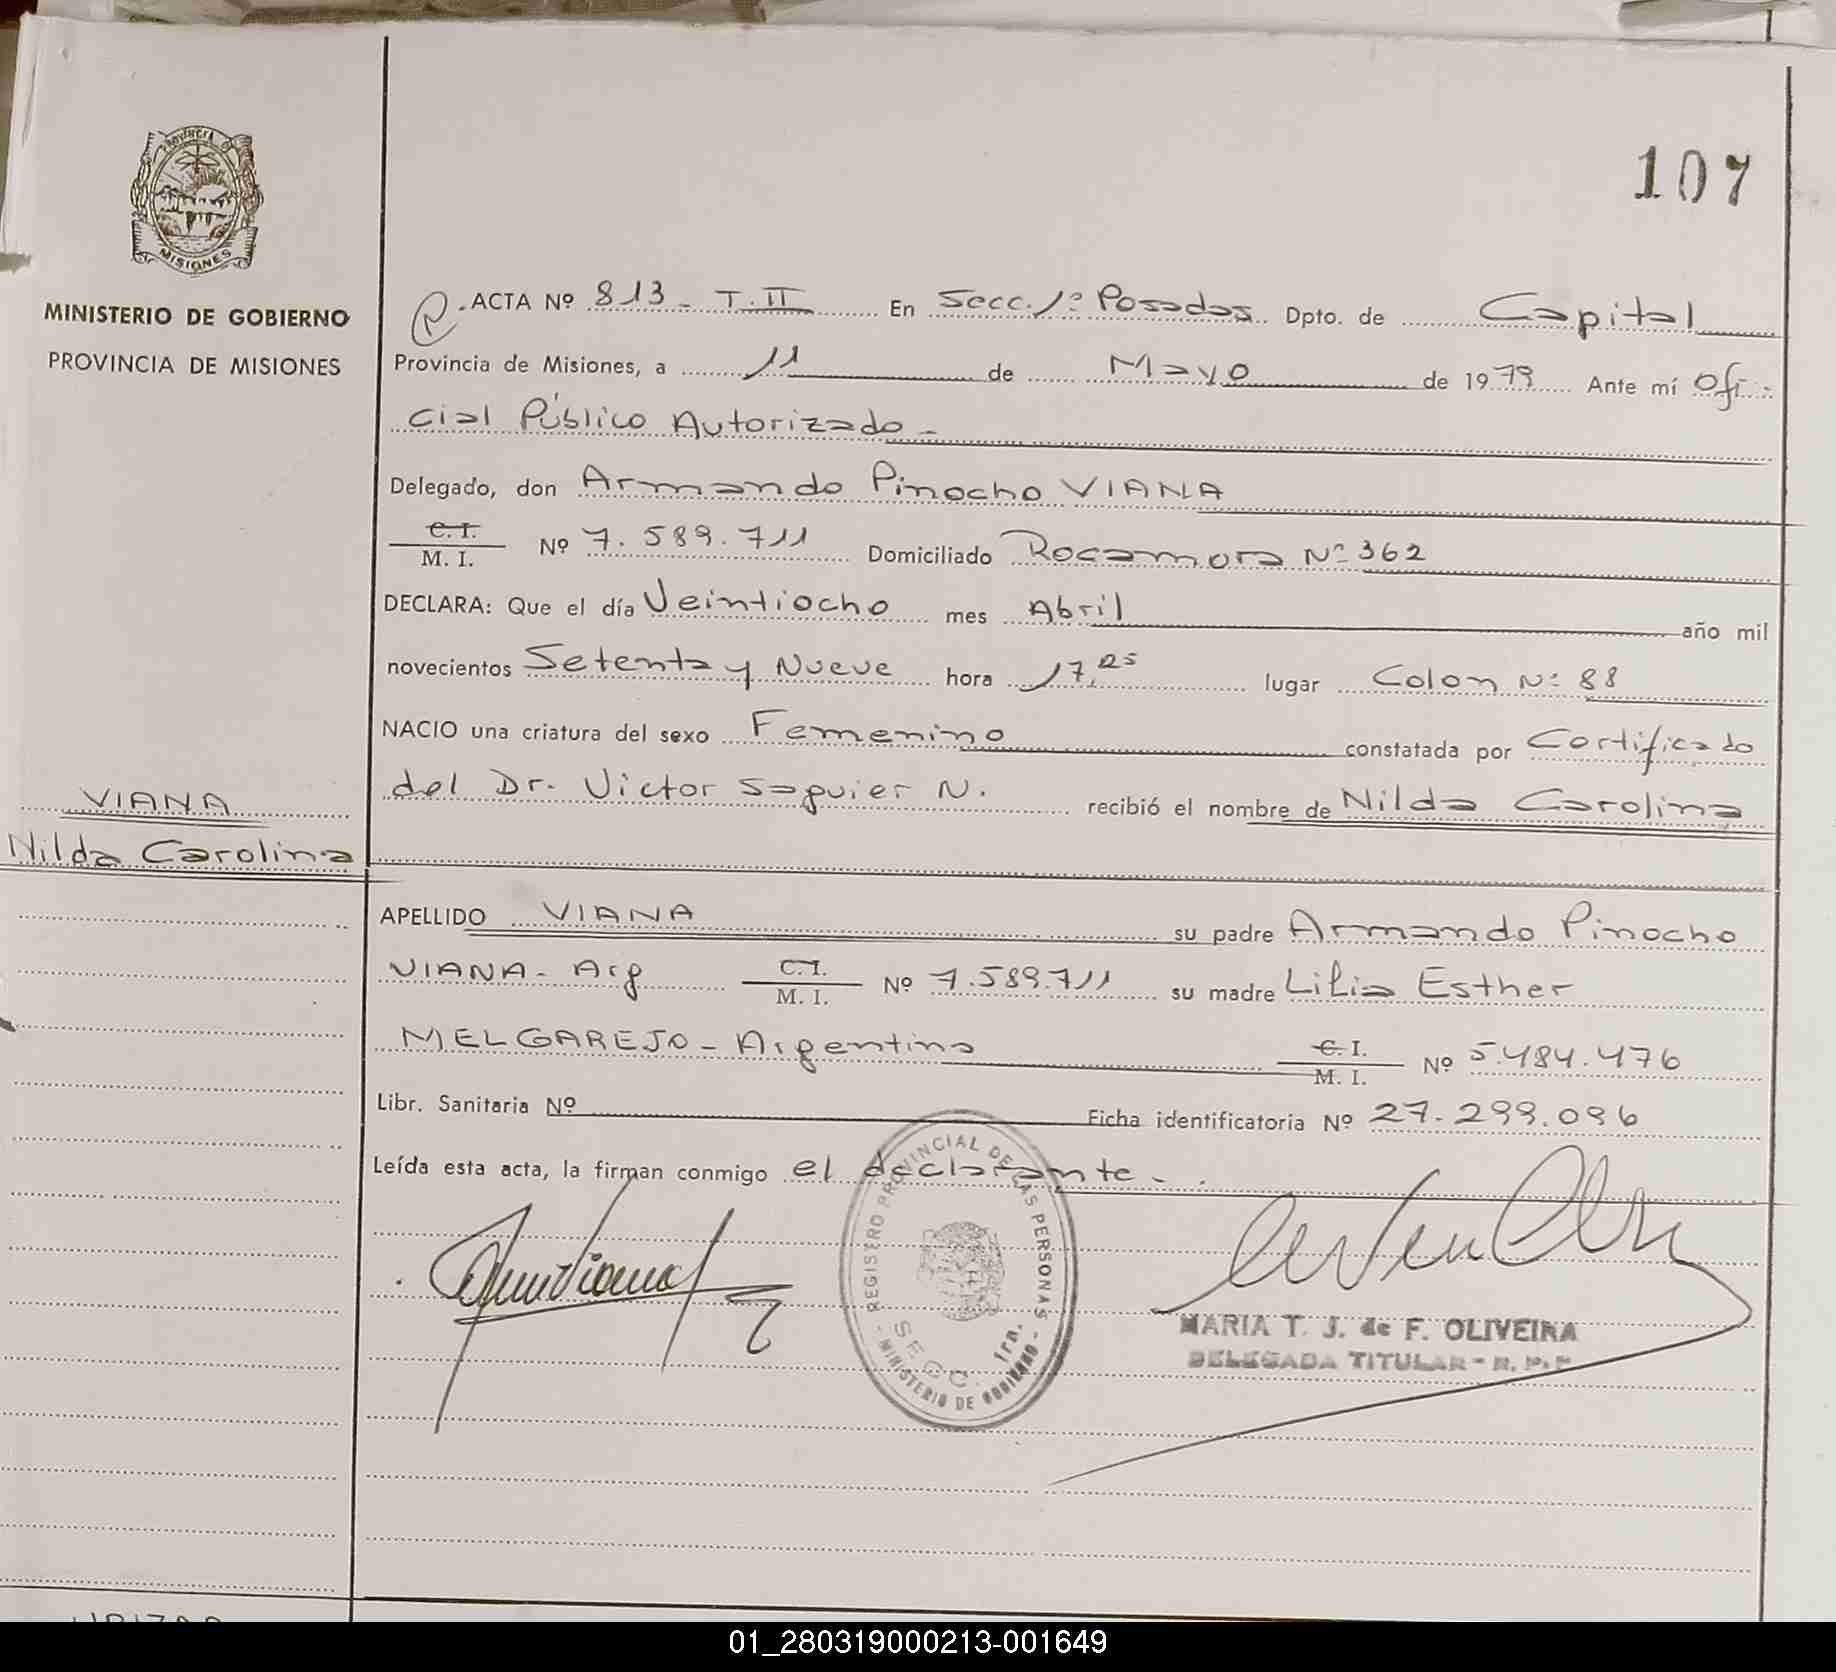 107
PROVINCIA DE
MISIONES
MINISTERIO DE GOBIERNO
PROVINCIA DE MISIONES
ACTA Nº 813 - T. II En Secc. 1ª Posadas Dpto. de Capital
Provincia de Misiones, a 11 de Mayo de 1979 Ante mí Ofi-
cial Público Autorizado -
Delegado, don Armando Pinocho VIANA
C. I. / M. I. Nº 7.589.711 Domiciliado Rocamora Nº 362
DECLARA: Que el día Veintiocho mes Abril año mil
novecientos Setenta y Nueve hora 17,25 lugar Colon Nº 88
NACIO una criatura del sexo Femenino constatada por Certificado
del Dr. Victor Saguier N. recibió el nombre de Nilda Carolina
VIANA
Nilda Carolina
APELLIDO VIANA su padre Armando Pinocho
VIANA - Arg C.I. / M. I. Nº 7.589.711 su madre Lilia Esther
MELGAREJO - Argentina C. I. / M. I. Nº 5.484.476
Libr. Sanitaria Nº Ficha identificatoria Nº 27.299.096
Leída esta acta, la firman conmigo el declarante -
REGISTRO PROVINCIAL DE LAS PERSONAS
SECC. 1ra.
- MINISTERIO DE GOBIERNO -
MARIA T. J. de F. OLIVEIRA
DELEGADA TITULAR - R. P. P.
01_280319000213-001649